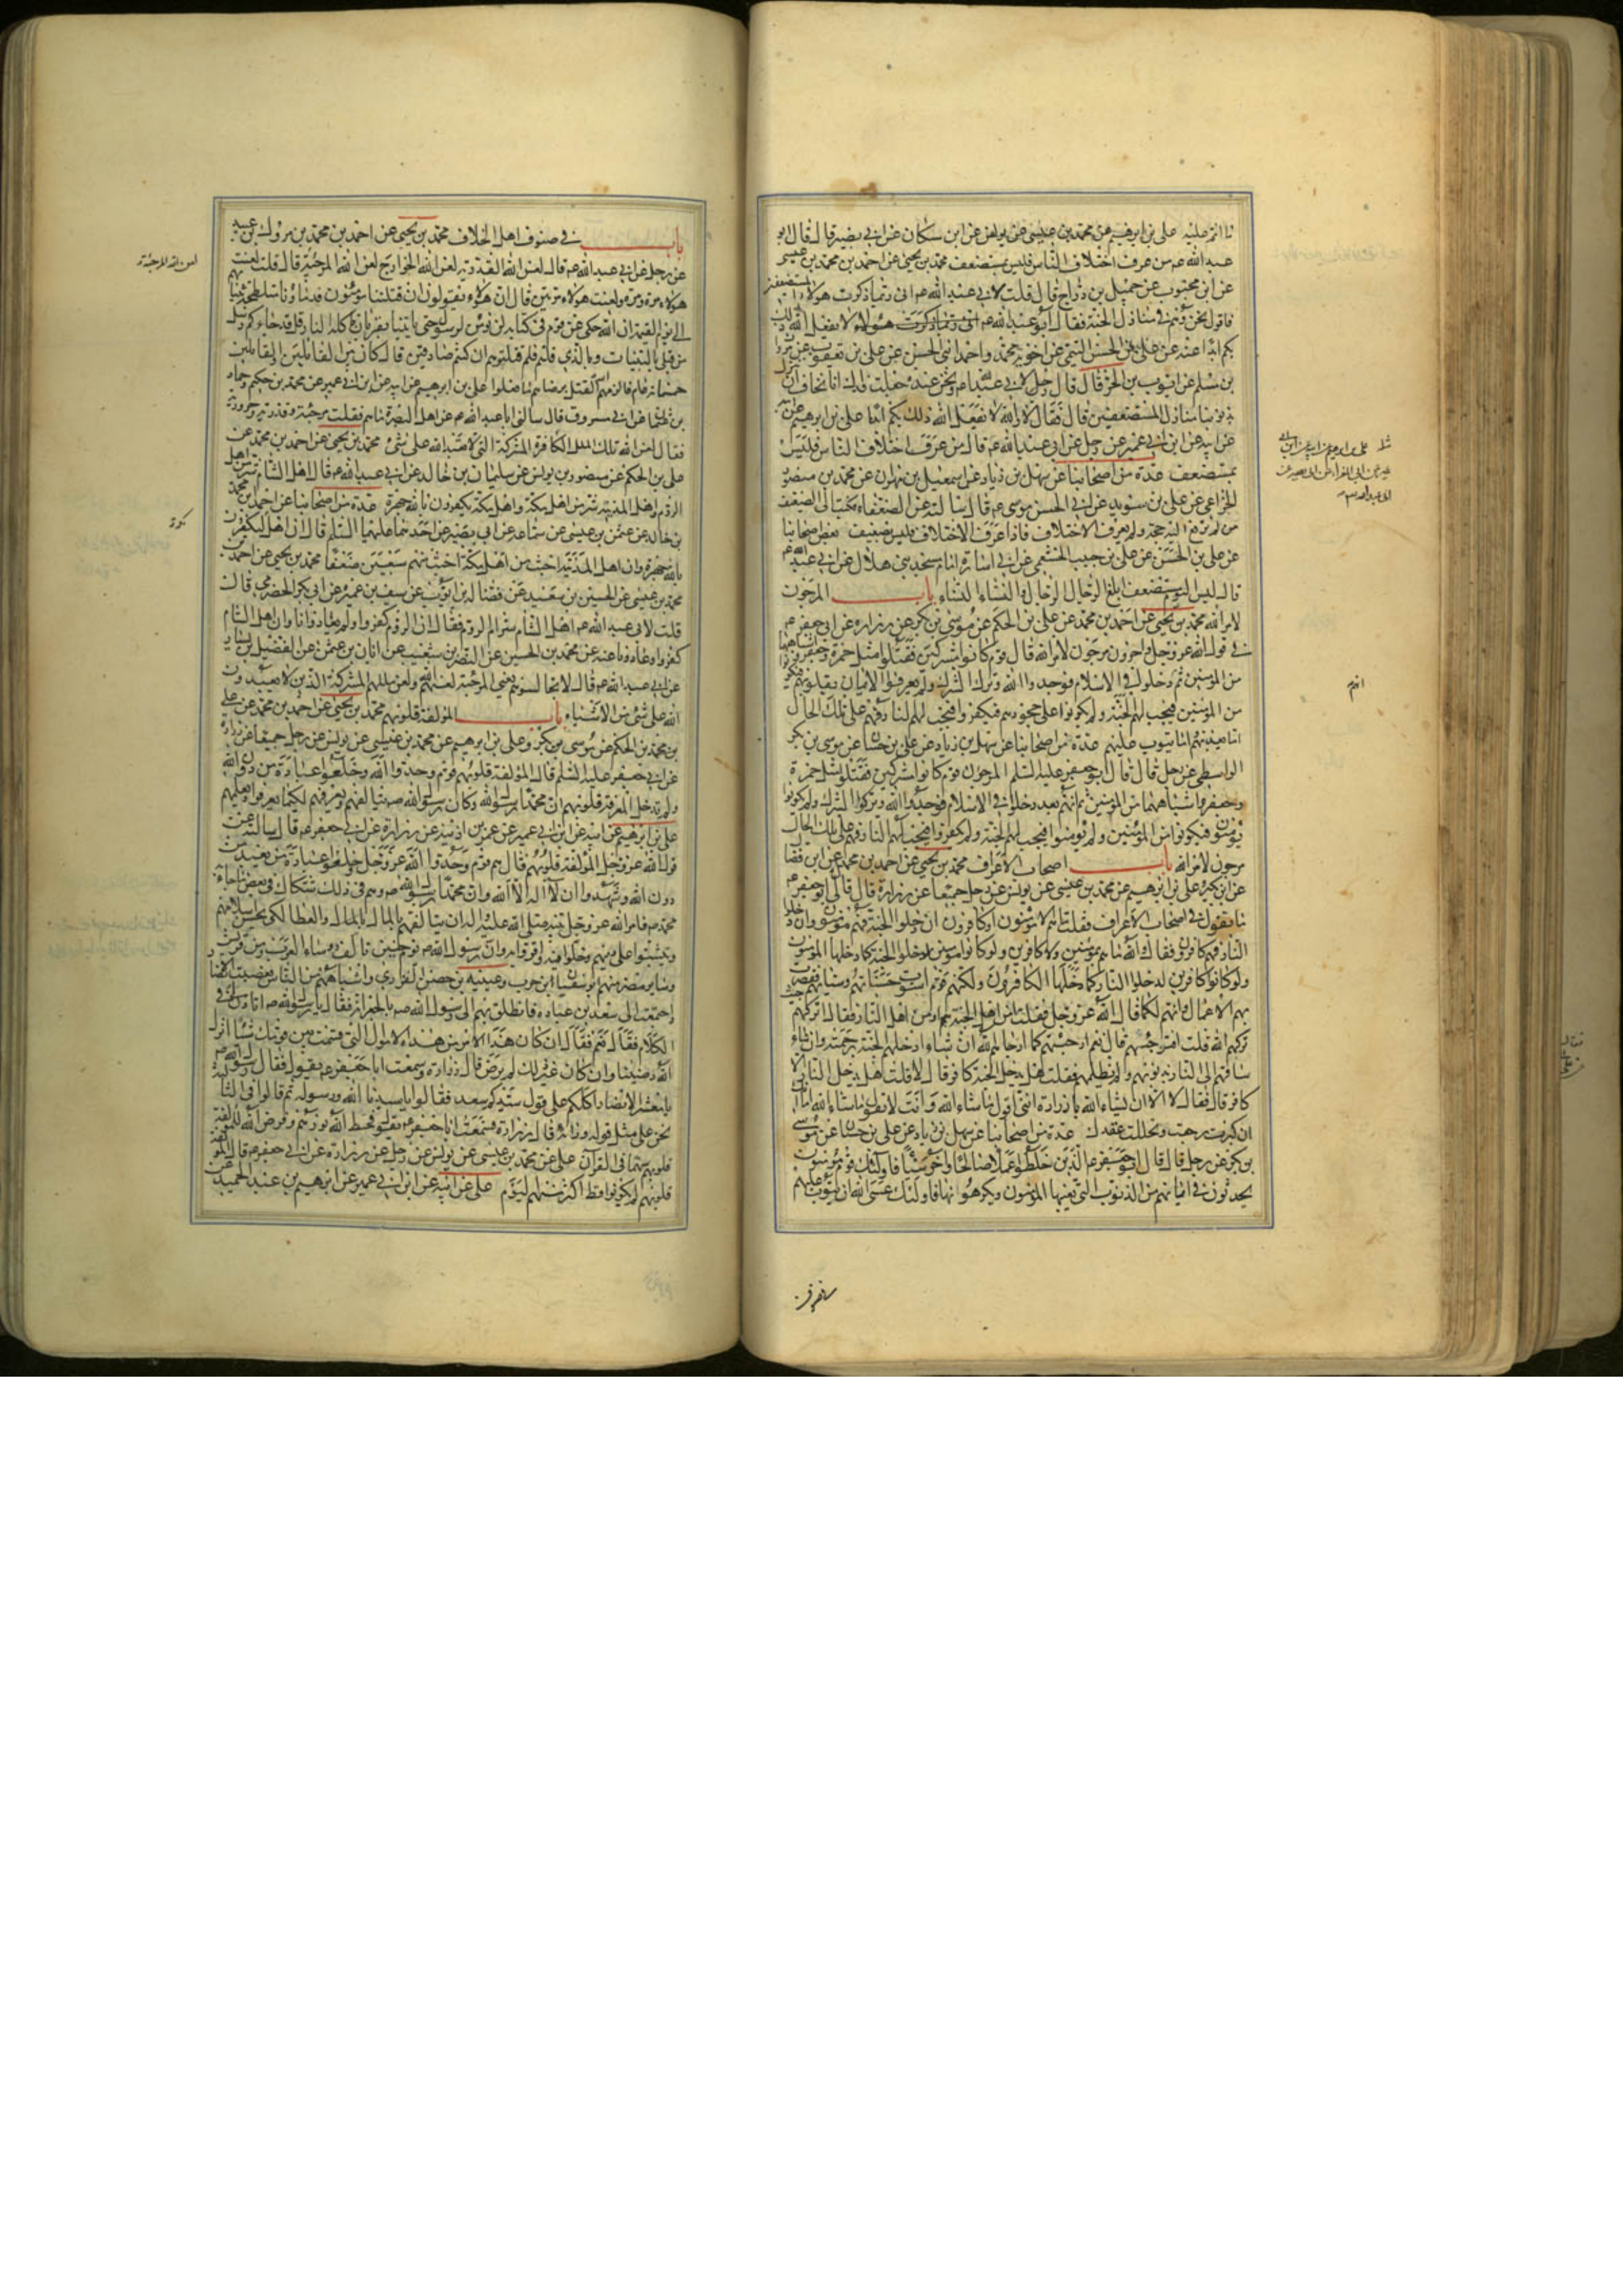 عليه علي بن ابرهيم عن محمد بن عيسى عن يونس عن ابن سكان عن ابي بصير قال قال ابو
عبد الله عم من عرف اختلاف الناس فليس بمستضعف محمد بن يحيى عن احمد بن محمد بن عيسى
عن ابن محبوب عن جميل بن دراج قال قلت لابي عبد الله عم اني ربما ذكرت هولاء المستضعفين
فاقول نحن وهم في منازل الجنة فقال ابو عبد الله عم لا يفعل الله ذلك
بكم ابدا عنه عن علي بن الحسن التيمي عن اخويه محمد واحمد ابني الحسن عن علي بن يعقوب عن مروان
بن مسلم عن ايوب بن الحر قال قال رجل لابي عبد الله عم ونحن عنده جعلت فداك انا نخاف ان
بذنوبنا منازل المستضعفين قال فقال لا والله لا يفعل الله ذلك بكم ابدا علي بن ابرهيم عن
عن ابيه عن ابن ابي عمير عن رجل عن ابي عبد الله عم قال من عرف اختلاف الناس فليس
بمستضعف عدة من اصحابنا عن سهل بن زياد عن اسمعيل بن مهران عن محمد بن منصور
الخزاعي عن علي بن سويد عن ابي الحسن موسى عم قال سالته عن الضعفاء فكتب الي الضعيف
من لم ترفع اليه حجة ولم يعرف الاختلاف فاذا عرف الاختلاف فليس بضعيف بعض اصحابنا
عن علي بن الحسن عن علي بن حبيب الخثعمي عن ابي سارة امام مسجد بني هلال عن ابي عبد الله عم
قال ليس اليوم مستضعف ابلغ الرجال الرجال والنساء النساء باب المرجون
لامر الله محمد بن يحيى عن احمد بن محمد عن علي بن الحكم عن موسى بن بكر عن زرارة عن ابي جعفر عم
في قول الله عز وجل واخرون مرجون لامر الله قال قوم كانوا مشركين فقتلوا مثل حمزة وجعفر واشباههما
من المؤمنين ثم دخلوا في الاسلام فوحدوا الله وتركوا الشرك ولم يعرفوا الايمان بقلوبهم فيكونوا
من المؤمنين فيجب لهم الجنة ولم يكونوا على جحودهم فيكفروا فيجب لهم النار فهم على تلك الحال
اما يعذبهم اما يتوب عليهم عدة من اصحابنا عن سهل بن زياد عن علي بن حسان عن موسى بن بكر
الواسطي عن رجل قال قال ابو جعفر عليه السلم المرجون قوم كانوا مشركين فقتلوا مثل حمزة
وجعفر واشباههما من المؤمنين ثم انهم بعد دخلوا في الاسلام فوحدوا الله وتركوا الشرك ولم يكونوا
يؤمنون فيكونوا من المؤمنين ولم يؤمنوا فيجب لهم الجنة ولم يكفروا فيجب لهم النار فهم على تلك الحال
مرجون لامر الله باب اصحاب الاعراف محمد بن يحيى عن احمد بن محمد عن ابن فضال
عن ابن بكير وعلي بن ابرهيم عن محمد بن عيسى عن يونس عن رجل جميعا عن زرارة قال قال لي ابو جعفر عم
ما تقول في اصحاب الاعراف فقلت ما هم الا مؤمنون او كافرون ان دخلوا الجنة فهم مؤمنون وان دخلوا
النار فهم كافرون فقال والله ما هم بمؤمنين ولا كافرين ولو كانوا مؤمنين لدخلوا الجنة كما دخلها المؤمنون
ولو كانوا كافرين لدخلوا النار كما دخلها الكافرون ولكنهم قوم استوت حسناتهم وسيئاتهم فقصرت
بهم الاعمال وانهم لكما قال الله عز وجل فقلت امن اهل الجنة هم او من اهل النار فقال اتركهم حيث
تركهم الله قلت افترجئهم قال نعم ارجئهم كما ارجاهم الله ان شاء ادخلهم الجنة برحمته وان شاء
ساقهم الى النار بذنوبهم ولم يظلمهم فقلت هل يدخل الجنة كافر قال لا قلت هل يدخل النار الا
كافر قال فقال لا الا ان يشاء الله يا زرارة انني اقول ما شاء الله وانت لا تقول ما شاء الله اما
ان كبرت رجعت وتحللت عقدك عدة من اصحابنا عن سهل بن زياد عن علي بن حسان عن موسى
بن بكر عن رجل قال قال ابو جعفر عم الذين خلطوا عملا صالحا واخر سيئا فاولئك قوم مؤمنون
يحدثون في ايمانهم من الذنوب التي يعيبها المؤمنون ويكرهونها فاولئك عسى الله ان يتوب عليهم
باب في صنوف اهل الخلاف محمد بن يحيى عن احمد بن محمد عن مروك بن عبيد
عن رجل عن ابي عبد الله عم قال لعن الله القدرية لعن الله الخوارج لعن الله المرجئة قال قلت لعنت
هولاء مرة مرة ولعنت هولاء مرتين قال ان هولاء يقولون ان قتلتنا مؤمنون فدماؤنا متلطخة بثيابهم
الى يوم القيمة ان الله حكى عن قوم في كتابه لن نؤمن لرسول حتى ياتينا بقربان تاكله النار قل قد جاءكم رسل
من قبلي بالبينات وبالذي قلتم فلم قتلتموهم ان كنتم صادقين قال كان بين القاتلين والقائلين
خمسمائة عام فالزمهم الله القتل برضاهم ما فعلوا علي بن ابرهيم عن ابيه عن ابن ابي عمير عن محمد بن حكيم وحماد
بن عثمان عن ابي مسروق قال سالني ابا عبد الله عم عن اهل البصرة ما هم فقلت مرجئة وقدرية وحرورية
فقال لعن الله تلك الملل الكافرة المشركة التي لا تعبد الله على شئ محمد بن يحيى عن احمد بن محمد عن
علي بن الحكم عن منصور بن يونس عن سليمان بن خالد عن ابي عبد الله عم قال اهل الشام شر من اهل
الروم واهل المدينة شر من اهل مكة واهل مكة يكفرون بالله جهرة عدة من اصحابنا عن احمد بن محمد
بن خالد عن عثمن بن عيسى عن سماعة عن ابي بصير عن احدهما عليهما السلم قال ان اهل مكة ليكفرون
بالله جهرة وان اهل المدينة اخبث من اهل مكة اخبث منهم سبعين ضعفا محمد بن يحيى عن احمد بن
محمد بن عيسى عن الحسين بن سعيد عن فضالة بن ايوب عن سيف بن عميرة عن ابي بكر الحضرمي قال
قلت لابي عبد الله عم اهل الشام شر ام الروم فقال ان الروم كفروا ولم يعادونا وان اهل الشام
كفروا وعادونا عنه عن محمد بن الحسين عن النضر بن شعيب عن ابان بن عثمن عن الفضيل بن يسار
عن ابي عبد الله عم قال لا تجالسوهم يعني المرجئة لعنهم الله ولعن مللهم المشركة الذين لا يعبدون
الله على شئ من الاشياء باب المؤلفة قلوبهم محمد بن يحيى عن احمد بن محمد عن علي
بن الحكم عن موسى بن بكر وعلي بن ابرهيم عن محمد بن عيسى عن يونس عن رجل جميعا عن زرارة
عن ابي جعفر عليه السلم قال المؤلفة قلوبهم قوم وحدوا الله وخلعوا عبادة من دون الله
ولم تدخل المعرفة قلوبهم ان محمدا رسول الله وكان رسول الله ص يتالفهم ويعرفهم لكيما يعرفوا ويعلمهم
علي بن ابرهيم عن ابيه عن ابن ابي عمير عن عمر بن اذينة عن زرارة عن ابي جعفر عم قال سالته عن
قول الله عز وجل المؤلفة قلوبهم قال هم قوم وحدوا الله عز وجل وخلعوا عبادة من يعبد من
دون الله وشهدوا ان لا اله الا الله وان محمدا رسول الله ص وهم في ذلك شكاك في بعض ما جاء به
محمد ص فامر الله عز وجل نبيه صلى الله عليه واله ان يتالفهم بالمال والعطا لكي يحسن اسلامهم
ويثبتوا على دينهم الذي دخلوا فيه واقروا به وان رسول الله ص يوم حنين تالف رؤساء العرب من قريش
وساير مضر منهم ابو سفيان بن حرب وعيينة بن حصين الفزاري واشباههم من الناس فغضبت الانصار
واجتمعت الى سعد بن عبادة فانطلق بهم الى رسول الله ص بالجعرانة فقال يا رسول الله ص اتاذن لي في
الكلام فقال نعم فقال ان كان هذا الامر من هذه الاموال التي قسمت بين قومك شيئا انزله
الله رضينا وان كان غير ذلك لم نرض قال زرارة وسمعت ابا جعفر عم يقول فقال رسول الله ص
يا معشر الانصار اكلكم على قول سيدكم سعد فقالوا سيدنا الله ورسوله ثم قالوا في الثالثة
نحن على مثل قوله ورايه قال زرارة فسمعت ابا جعفر عم يقول فحط الله نورهم وفرض الله للمؤلفة
قلوبهم سهما في القرآن علي عن محمد بن عيسى عن يونس عن رجل عن زرارة عن ابي جعفر عم قال المؤلفة
قلوبهم لم يكونوا قط اكثر منهم اليوم علي عن ابيه عن ابن ابي عمير عن ابرهيم بن عبد الحميد عن
لعن الله المرجئة